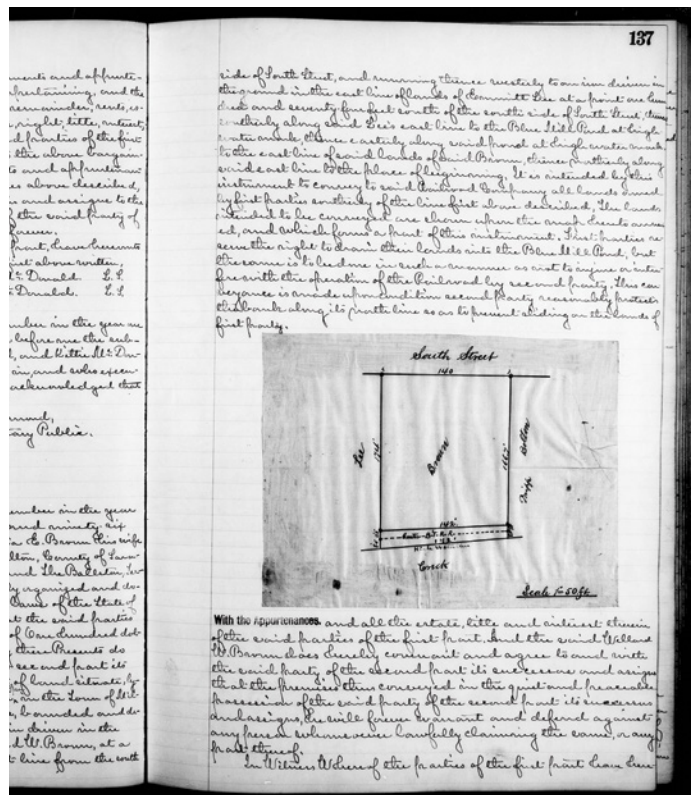 137
ments and appurte-
pertaining, and the
remainder, rents, is-
right, title, interest,
d parties of the fir
the above bargain
to and appurtenan
es above described,
and assigns to the
f the said party of
forever.
part, have hereunto
above written,
Mc Donald L.S.
Mc Donald. L.S.
mber in the year one
before me the sub-
and Kittie Mc Don-
in, and who execu-
acknowledged that
mond,
tary Public.
ember in the year
and ninety-six
E. Brown his wife
County of Sara-
and The Ballston,
y organized and do-
Laws of the State of
t the said parties
of One hundred dol-
these Presents do
second part its
of land situate, ly-
in the Town of Mil-
bounded and de-
driven in the
d W. Brown, at a
line from the south
side of South Street, and running thence westerly to an iron driven in
the ground in the east line of lands of Emmitt Lee at a point one hun-
dred and seventy four feet south of the south side of South Street, thence
southerly along said Lee's east line to the Blue Mill Pond at high
water mark, thence easterly along said pond at high water mark
to the east line of said lands of said Brown, thence northerly along
said east line to the place of beginning. It is intended by this
instrument to convey to said Railroad Company all lands owned
by first parties southerly of the line first above described. The lands
intended to be conveyed are shown upon the map hereto annex-
ed, and which forms a part of this instrument. First parties re-
serve the right to drain their lands into the Blue Mill Pond, but
the same is to be done in such a manner as not to injure or inter-
fere with the operation of the Railroad by second party. This con
veyance is made upon condition second party reasonably protects
the bank along its north line so as to prevent sliding on the lands of
first party.
South Street
140
Lee
174'
Brown
166.2'
Bolton
142'
Creek
Scale 1"=50 ft
With the Appurtenances, and all the estate, title and interest therein
of the said parties of the first part. And the said Willard
W. Brown does hereby covenant and agree to and with
the said party of the second part its successors and assigns
that the premises thus conveyed in the quiet and peaceable
possession of the said party of the second part its successors
and assigns, he will forever warrant and defend against
any person whomsoever lawfully claiming the same, or any
part thereof.
In Witness Whereof the parties of the first part have here